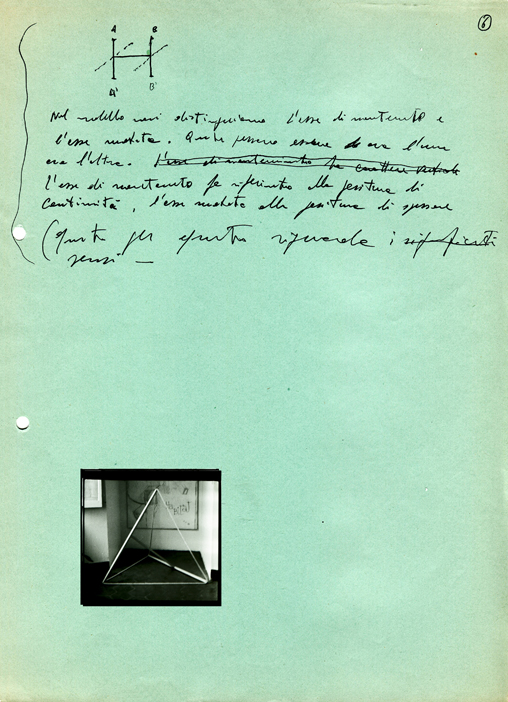 6
A B
A' B'
Nel modello noi distinguiamo l'asse di mantenuto e
l'asse mutata. Questi possono essere ora l'una
ora l'altra. l'asse di mantenimento ha carattere
l'asse di mantenuto fa riferimento alla positura di
continuità, l'asse mutata alla positura di
(questo per quanto riguarda i significati
sensi —